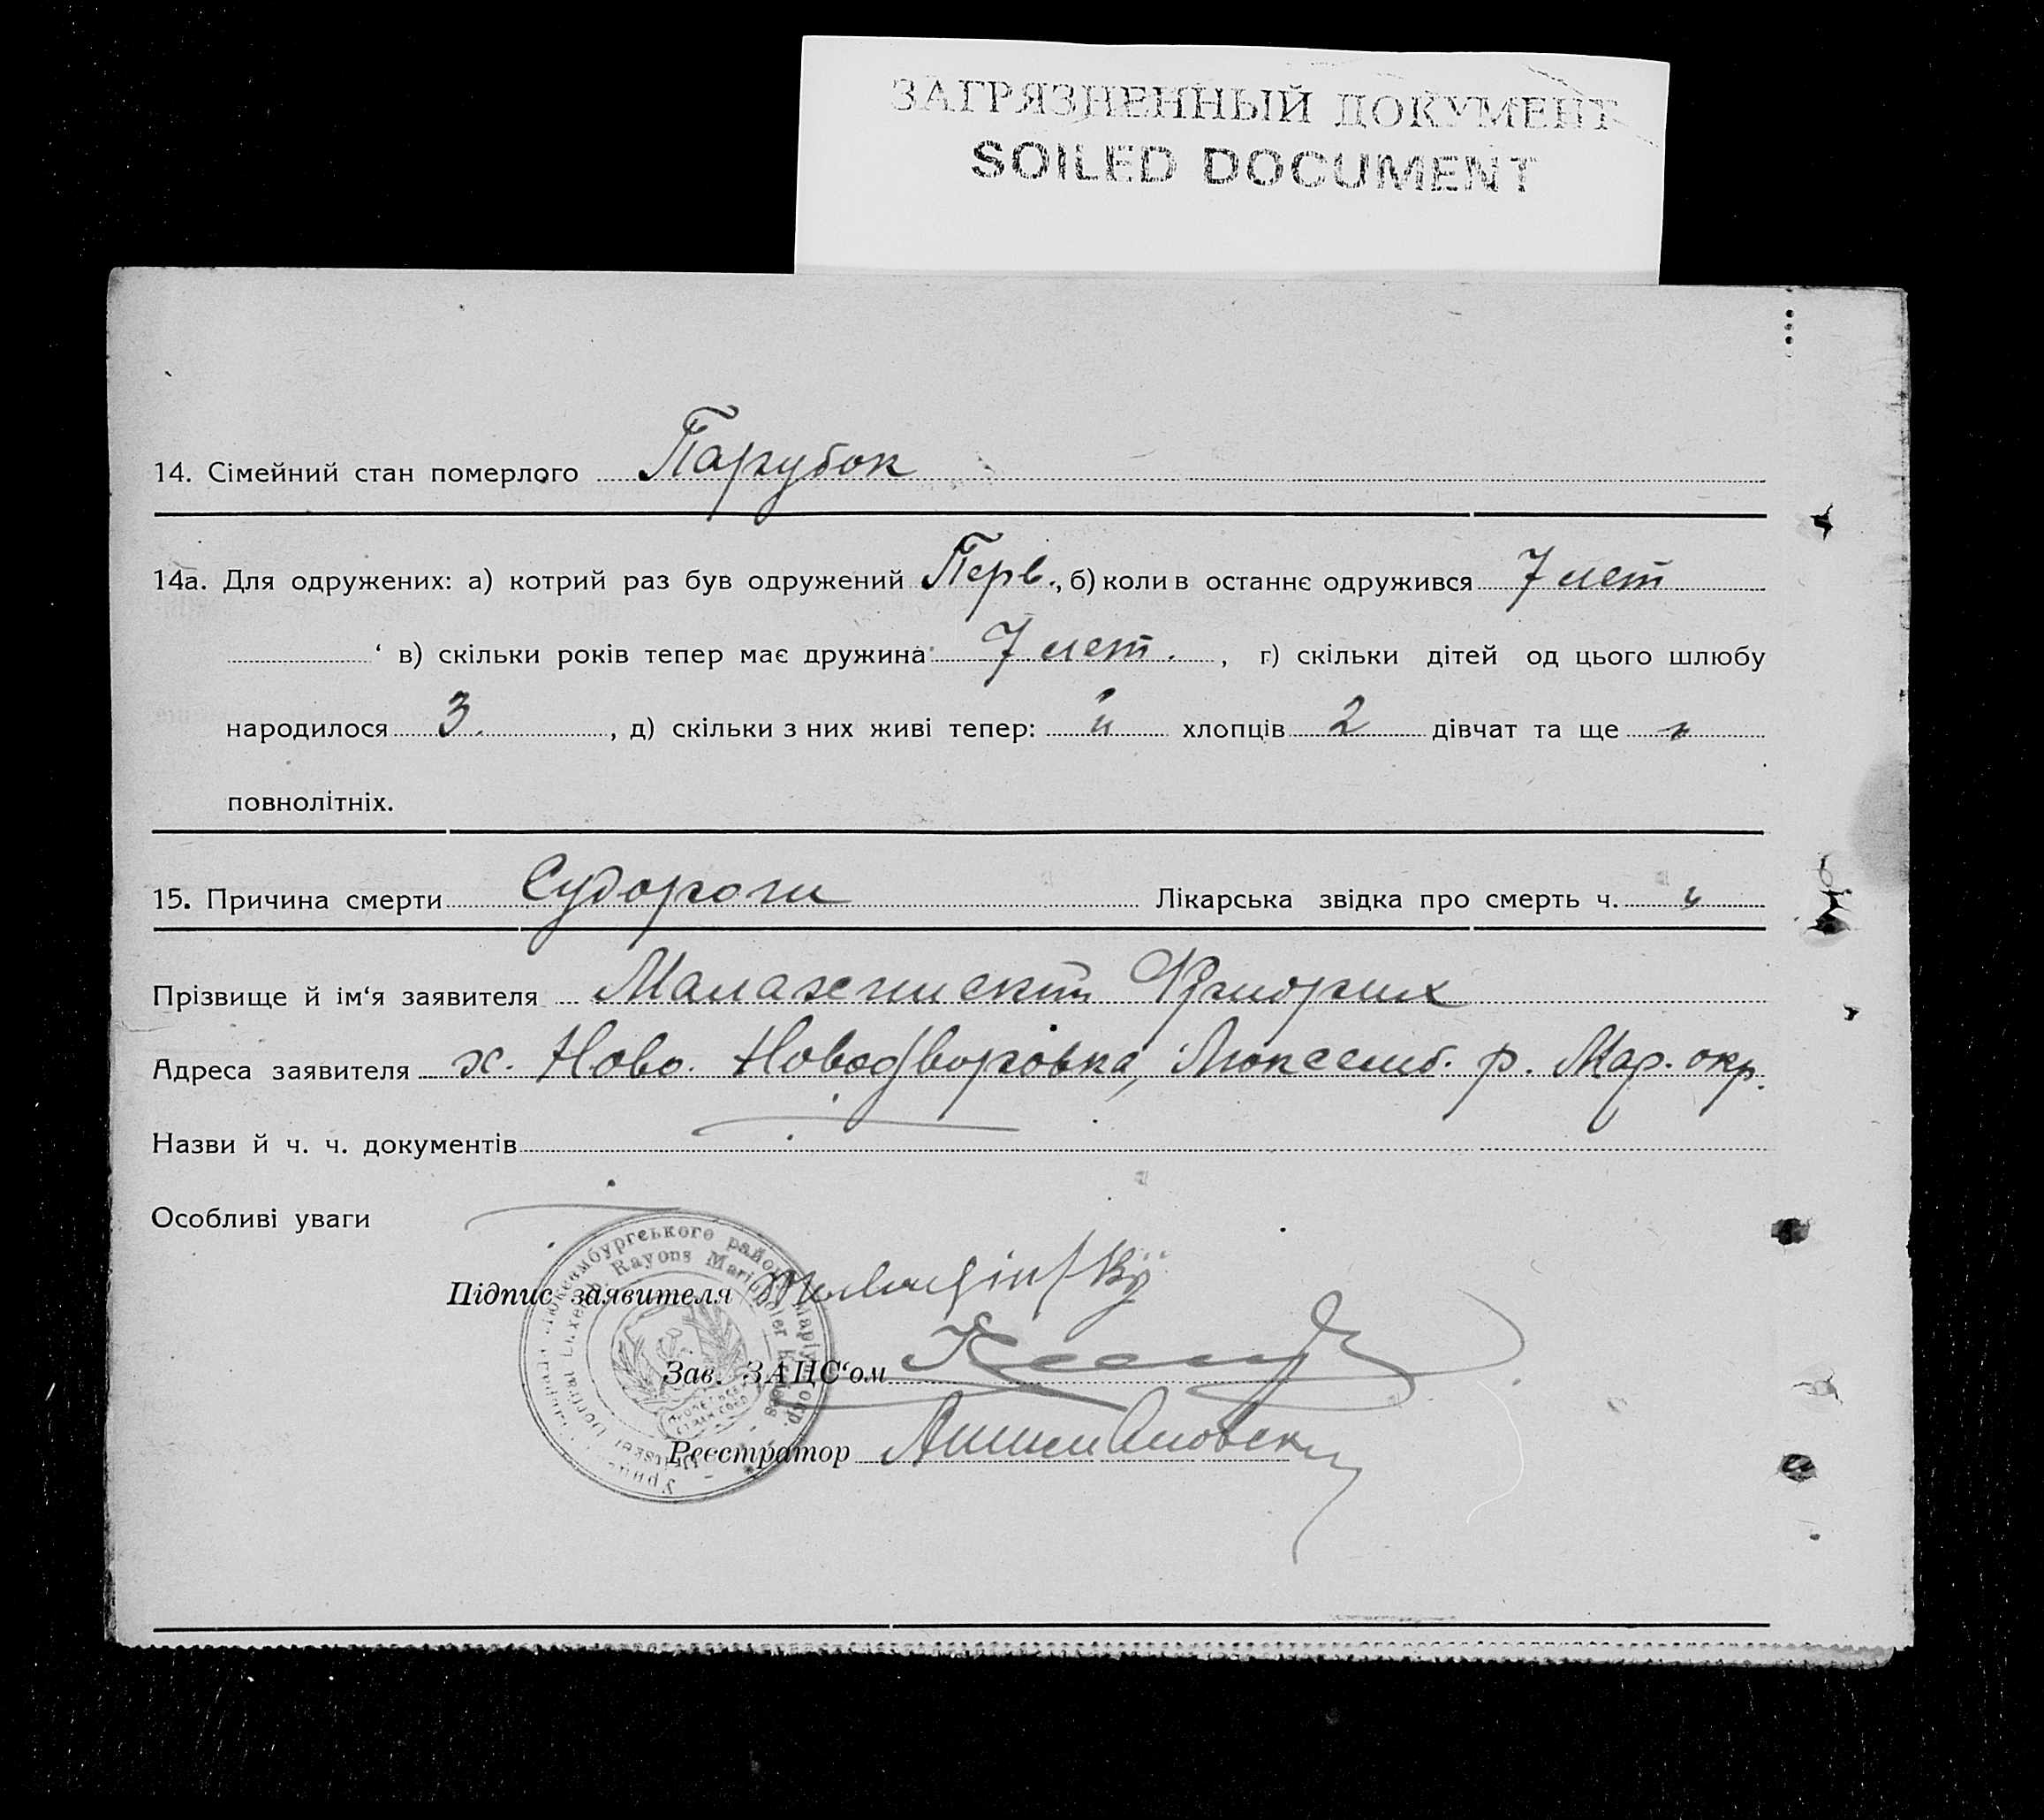 ЗАГРЯЗНЕННЫЙ ДОКУМЕНТ
SOILED DOCUMENT
14. Сімейний стан померлого Парубок
14а. Для одружених: а) котрий раз був одружений Перв., б) коли в останнє одружився 7 лет
в) скільки років тепер має дружина 7 лет. , г) скільки дітей од цього шлюбу
народилося 3. , д) скільки з них живі тепер: хлопців 2 дівчат та ще
повнолітніх.
15. Причина смерти Судороги Лікарська звідка про смерть ч.
Прізвище й ім‘я заявителя
Адреса заявителя х. Ново. Новодворовка, Люксемб. р. Мар. окр.
Назви й ч. ч. документів
Особливі уваги
Підпис заявителя
Зав. ЗАЦС‘ом
Реєстратор